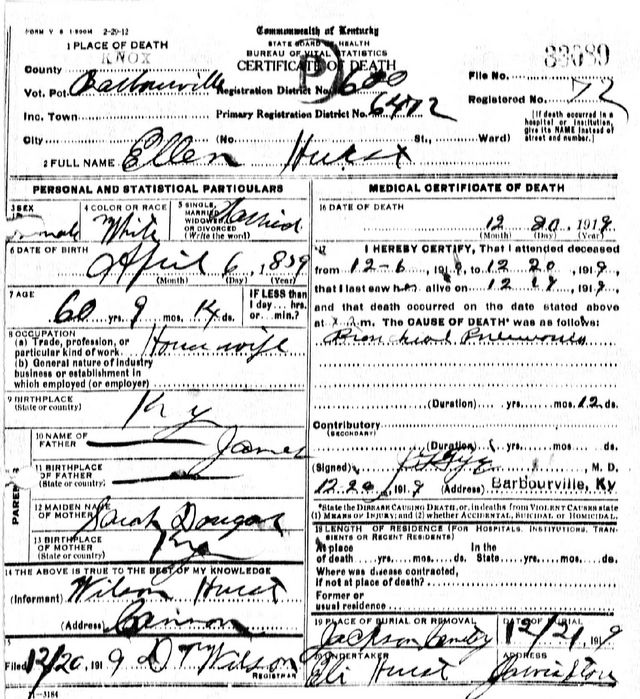 FORM V S 1-500M 2-29-12
Commonwealth of Kentucky
STATE BOARD OF HEALTH
BUREAU OF VITAL STATISTICS
CERTIFICATE OF DEATH
1 PLACE OF DEATH
KNOX
County
Vot. Pct. Barbourville
Inc. Town
City (No. St., Ward)
Registration District No. 600
Primary Registration District No. 6472
File No. 33089
Registered No. 72
[If death occurred in a
hospital or institution,
give its NAME instead of
street and number.]
2 FULL NAME Ellen Hurst
PERSONAL AND STATISTICAL PARTICULARS
3 SEX
Female
4 COLOR OR RACE
White
5 SINGLE,
MARRIED
WIDOWED
OR DIVORCED
(Write the word)
Married
6 DATE OF BIRTH
April 6, 1859
(Month) (Day) (Year)
7 AGE
60 yrs. 9 mos. 14 ds.
IF LESS than
1 day... hrs.
or... min.?
8 OCCUPATION
(a) Trade, profession, or
particular kind of work House wife
(b) General nature of industry
business or establishment in
which employed (or employer)
9 BIRTHPLACE
(State or country)
Ky
10 NAME OF
FATHER
James
11 BIRTHPLACE
OF FATHER
(State or country)
12 MAIDEN NAME
OF MOTHER
Sarah
13 BIRTHPLACE
OF MOTHER
(State or country)
Ky
14 THE ABOVE IS TRUE TO THE BEST OF MY KNOWLEDGE
(Informant) Wilson Hurst
(Address) Cannon
Filed 12/20, 1919 Wilson
REGISTRAR
11-3184
MEDICAL CERTIFICATE OF DEATH
16 DATE OF DEATH
12 20, 1919.
(Month) (Day) (Year)
17 I HEREBY CERTIFY, That I attended deceased
from 12-6, 1919, to 12 20, 1919,
that I last saw her alive on 12 19, 1919,
and that death occurred on the date stated above
at m. The CAUSE OF DEATH* was as follows:
Bronchial Pneumonia
(Duration) yrs. mos. 12 ds.
Contributory
(SECONDARY)
(Duration) yrs. mos. ds.
(Signed) M. D.
12-20, 1919 (Address) Barbourville, Ky
*State the DISEASE CAUSING DEATH, or, in deaths from VIOLENT CAUSES state
(1) MEANS OF INJURY; and (2) whether ACCIDENTAL, SUICIDAL OR HOMICIDAL.
18 LENGTH OF RESIDENCE (FOR HOSPITALS, INSTITUTIONS, TRANSIENTS OR RECENT RESIDENTS)
At place In the
of death yrs. mos. ds. State yrs. mos. ds.
Where was disease contracted,
if not at place of death?
Former or
usual residence
19 PLACE OF BURIAL OR REMOVAL
Jackson Cemetry
DATE OF BURIAL
12/21, 1919
20 UNDERTAKER
Eli Hurst
ADDRESS